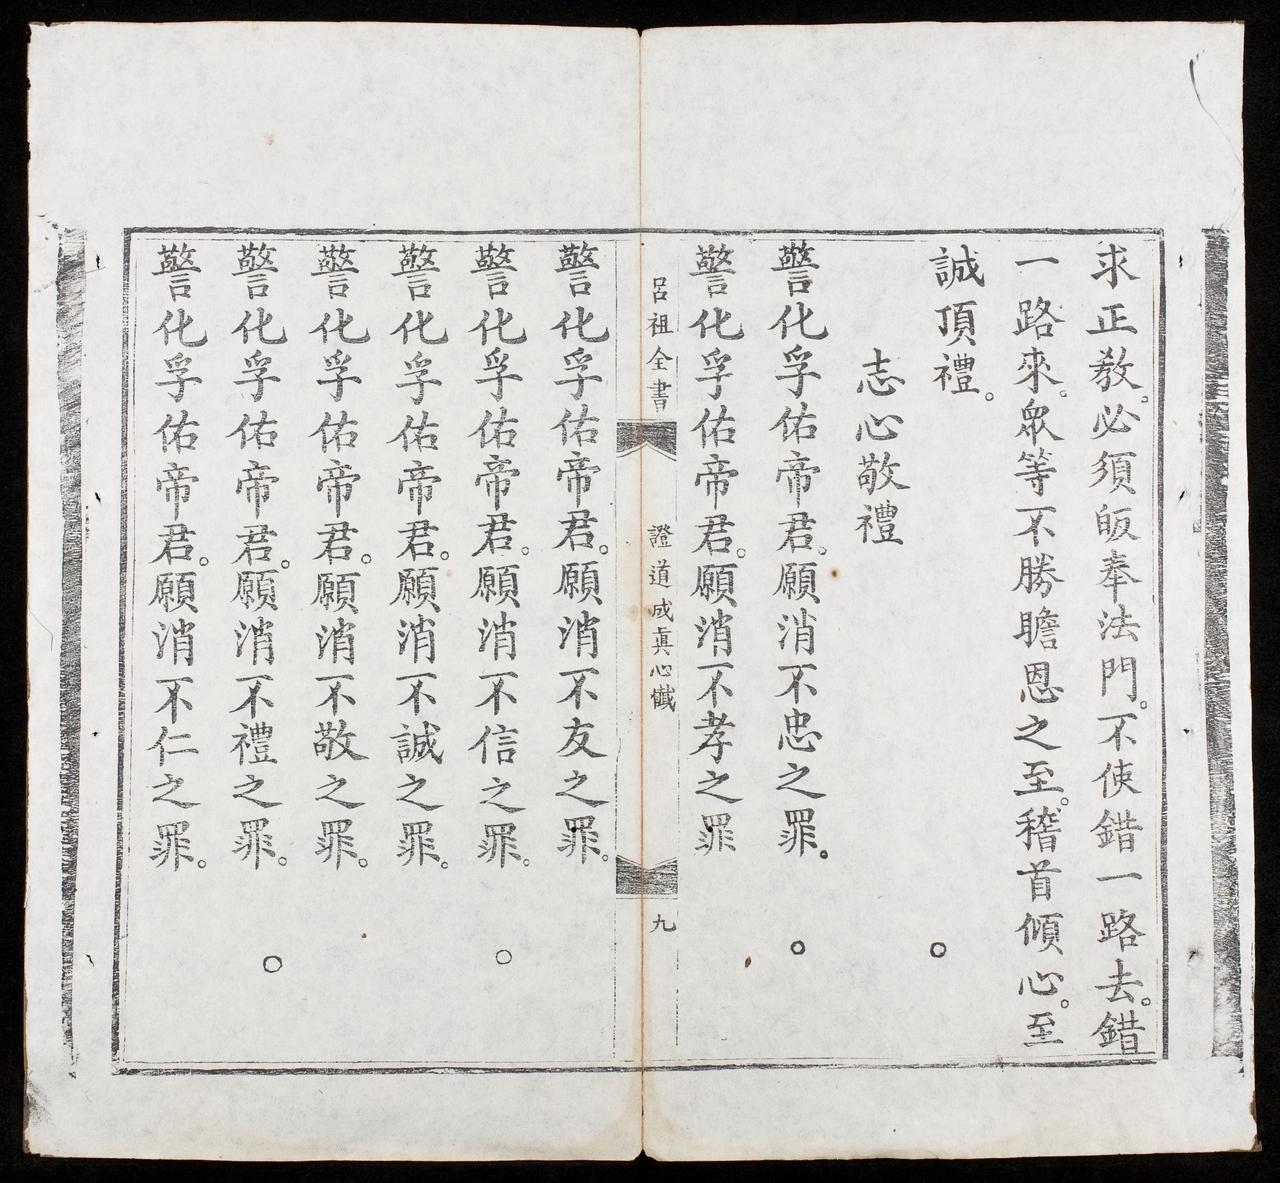 求正教。必須皈奉法門。不使錯一路去。錯
一路來。衆等不勝瞻恩之至。稽首傾心。至
誠頂禮。○
志心敬禮
警化孚佑帝君。願消不忠之罪。○
警化孚佑帝君。願消不孝之罪
呂祖全書 證道成眞心懺 九
警化孚佑帝君。願消不友之罪。
警化孚佑帝君。願消不信之罪。○
警化孚佑帝君。願消不誠之罪。
警化孚佑帝君。願消不敬之罪。
警化孚佑帝君。願消不禮之罪。○
警化孚佑帝君。願消不仁之罪。